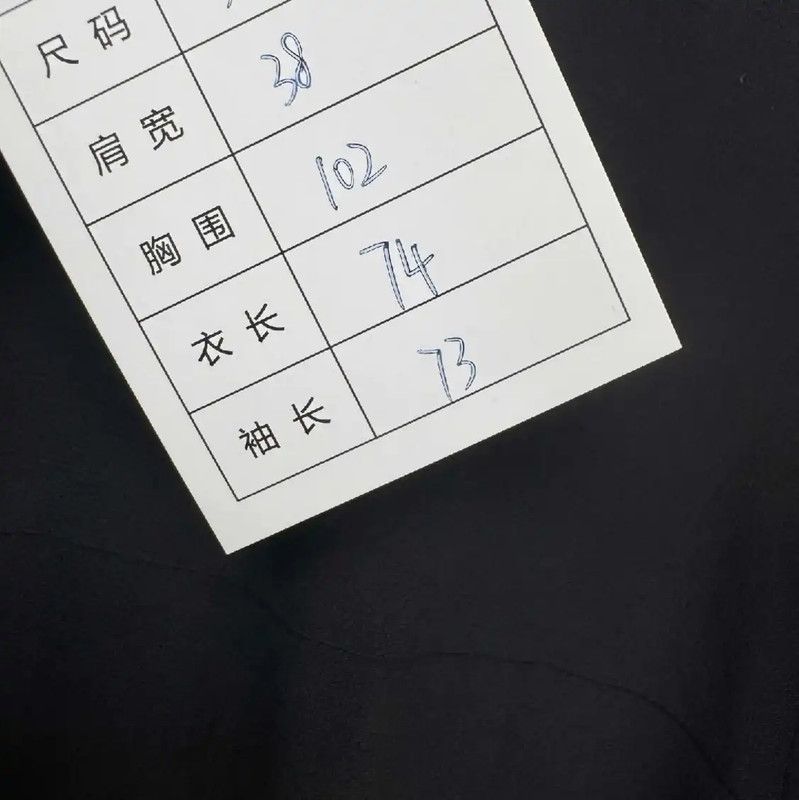 尺码
肩宽 38
胸围 102
衣长 74
袖长 73